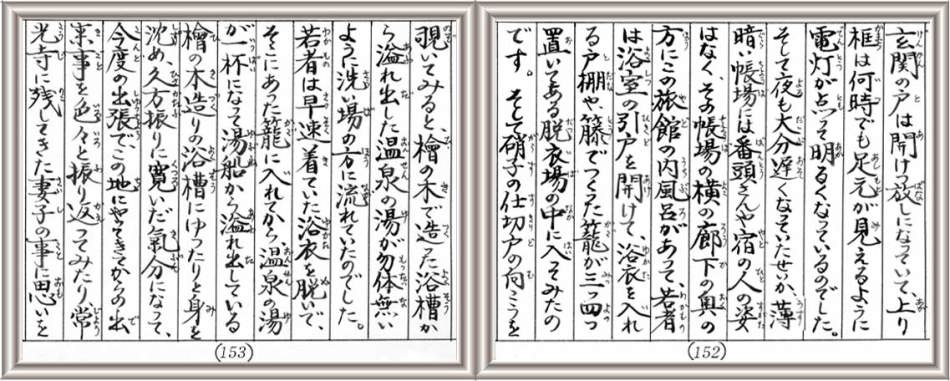 玄関の戸は開けっ放しになっていて、上り
框は何時でも足元が見えるように
電灯が点って明るくなっているのでした。
そして夜も大分遅くなっていたせいか、薄
暗い帳場には番頭さんや宿の人の姿
はなく、その帳場の横の廊下の奥の
方にこの旅館の内風呂があって、若者
は浴室の引戸を開けて、浴衣を入れ
る戸棚や、籐でつくった籠が三つ四つ
置いてある脱衣場の中に入ってみたの
です。そして硝子の仕切戸の向こうを
(152)
覗いてみると、檜の木で造った浴槽か
ら溢れ出した温泉の湯が勿体無い
ように洗い場の方に流れていたのでした。
若者は早速着ていた浴衣を脱いで、
そこにあった籠に入れてから温泉の湯
が一杯になって湯船から溢れ出している
檜の木造りの浴槽にゆったりと身を
沈め、久方振りに寛いだ氣分になって、
今度の出張でこの地にやってきてからの出
来事を色々と振り返ってみたり、常
光寺に残してきた妻子の事に思いを
(153)